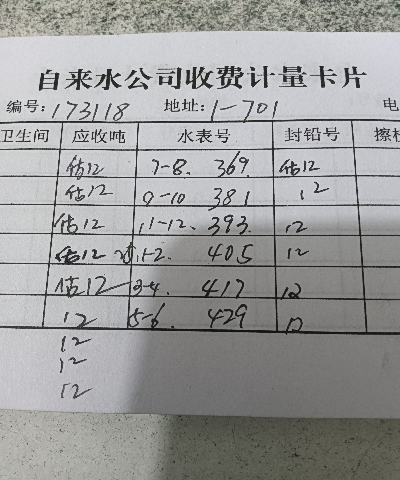 自来水公司收费计量卡片
编号:173118 地址:1-701 电
卫生间 应收吨 水表号 封铅号 擦
估12 7-8. 369. 估12
估12 9-10 381 12
估12 11-12. 393. 12
估12 1-2. 405 12
估12 3-4. 417 12
12 5-6. 429 12
12
12
12